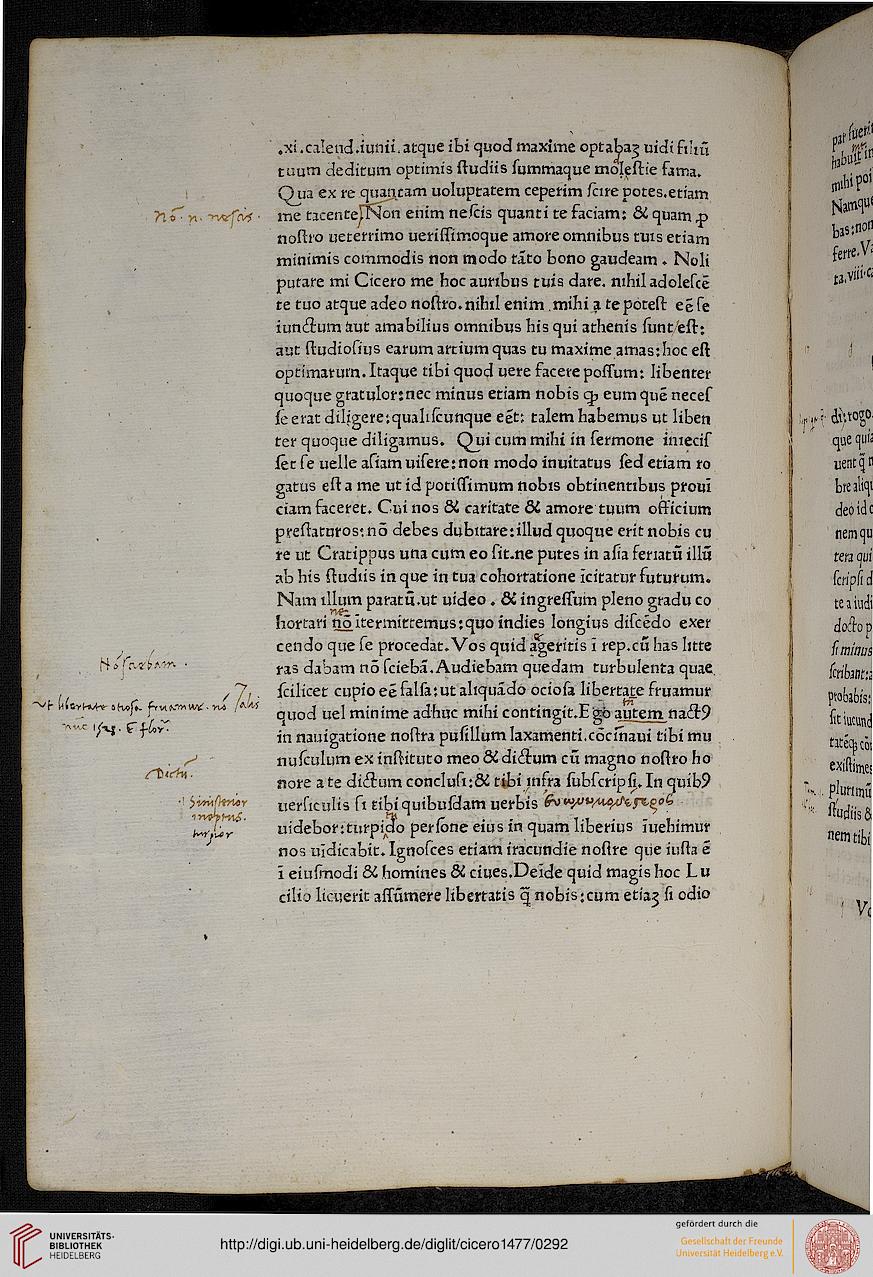 .xi.calend.iunii.atque ibi quod maxime optabaꝫ uidi filiū
tuum deditum optimis ſtudiis ſummaque moleſtie fama.
Qua ex re quantam uoluptatem ceperim ſcire potes.etiam
Nō. n. neſcis.
me tacente Non enim neſcis quanti te faciam: & quam ꝓ
noſtro ueterrimo ueriſſimoque amore omnibus tuis etiam
minimis commodis non modo tāto bono gaudeam . Noli
putare mi Cicero me hoc auribus tuis dare. nihil adoleſcē
te tuo atque adeo noſtro.nihil enim mihi a te poteſt eē ſe
iunctum aut amabilius omnibus his qui athenis ſunt/eſt:
aut ſtudioſius earum artium quas tu maxime amas:hoc eſt
optimarum.Itaque tibi quod uere facere poſſum: libenter
quoque gratulor:nec minus etiam nobis ꝙ eum quē neceſ
ſe erat diligere:qualiſcunque eēt: talem habemus ut liben
ter quoque diligamus. Qui cum mihi in ſermone inieciſ
ſet ſe uelle aſiam uiſere:non modo inuitatus ſed etiam ro
gatus eſt a me ut id potiſſimum nobis obtinentibus prouī
ciam faceret. Cui nos & caritate & amore tuum officium
preſtaturos:nō debes dubitare:illud quoque erit nobis cu
re ut Cratippus una cum eo ſit.ne putes in aſia feriatū illū
ab his ſtudiis in que in tua cohortatione īcitatur futurum.
Nam illum paratū.ut uideo . & ingreſſum pleno gradu co
ne
hortari nō ītermittemus:quo indies longius diſcēdo exer
cendo que ſe procedat.Vos quid ageritis ī rep.cū has litte
Nō ſciebam .
ras dabam nō ſciebā.Audiebam quedam turbulenta quae
ſcilicet cupio eē falſa:ut aliquādo ocioſa libertate fruamur
Ut libertate otioſa fruamur. nō
quod uel minime adhuc mihi contingit.Ego autem nactꝰ
in nauigatione noſtra puſillum laxamenti.cōcīnaui tibi mu
nuſculum ex inſtituto meo & dictum cū magno noſtro ho
Dictū.
nore a te dictum concluſi:& tibi infra ſubſcripſi. In quibꝰ
Siniſterior
ineptus.
turpior
uerſiculis ſi tibi quibuſdam uerbis
uidebor:turpido perſone eius in quam liberius īuehimur
nos uīdicabit. Ignoſces etiam iracundie noſtre que iuſta ē
ī eiuſmodi & homines & ciues.Deīde quid magis hoc Lu
cilio licuerit aſſūmere libertatis q̄ nobis:cum etiaꝫ ſi odio
habuit in
mihi poi
Namque
bas:non
ferre.
ta.viii.c
di,rogo.
que quia
uent q̄ n
bre aliqu
deo id c
nem qu
tera qui
ſcripſi d
te a iudi
docto p
ſi minus
ſcribant:
probabis:
ſit iucund
exiſtimes
plurimū
ſtudiis &
nem tibi
UNIVERSITÄTS-
BIBLIOTHEK
HEIDELBERG
http://digi.ub.uni-heidelberg.de/diglit/cicero1477/0292
gefördert durch die
Gesellschaft der Freunde
Universität Heidelberg e.V.